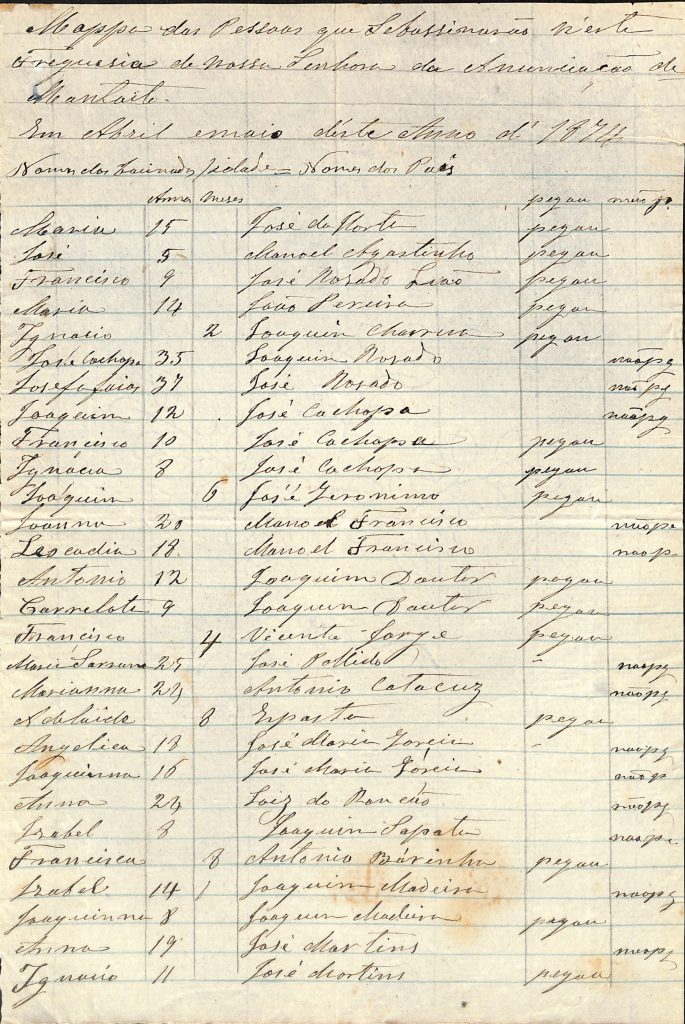 Mappa das Pessoas que Sebassinarão n'esta
Freguesia de nossa Senhora da Anunciação de
Em Abril emaio déste Anno d' 1874
Nomes dos Idade = Nomes dos Pais
Annos Meses pegau nãop.
Maria 15 José da Horta pegau
José 5 Manoel Agostinho pegau
Francisco 9 José Rosado Lião pegau
Maria 14 João Pereira pegau
Ignacio 2 Joaquin Charrua pegau
José Cachopa 35 Joaquin Rosado nãopg
Josefafaias 37 José Rosado nãopg
Joaquim 12 José Cachopa nãopg
Francisco 10 José Cachopa pegau
Ignácia 8 José Cachopa pegau
Joáquim 6 José Jeronimo pegau
Joanna 20 Manoel Francisco nãope
Leocadia 18 Manoel Francisco naop.
Antonio 12 Joaquim Doutor pegau
9 Joaquin Doutor pegau
Francisco 4 Vicente Jorge pegau
Maria 25 José naopg
Marianna 24 Antonio Catacuz naopg
Adelaide 8 Esposta pegau
Angelica 18 José Maria naopg
Joaquinna 16 José Maria não p
Anna 24 Luiz do naopg
Izabel 8 Joaquin Sapata naope.
Francisca 8 Antonio pegau
Izabel 14 1 Joaquim Madeira naopg
Joaquinna 8 Joaquin Madeira pegau
Anna 19 José Martins naopg
Ignacio 11 José Mortins pegau